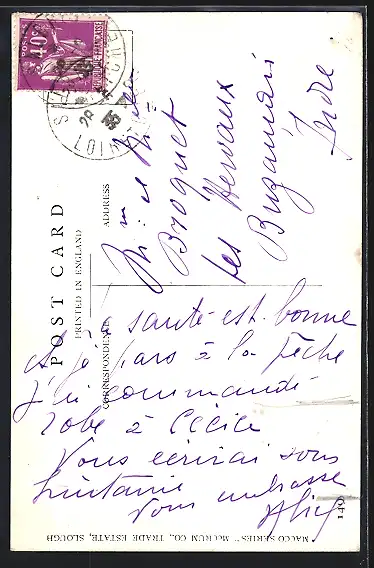 POSTES
40c
REPUBLIQUE FRANÇAISE
POST CARD
PRINTED IN ENGLAND
ADDRESS
CORRESPONDENCE
Mr et Mme
Broquet
les Hervaux
Buzançais
Indre
santé est bonne
à la Pêche
j'ai commandé
robe à Cécile
Vous écrirai sous
huitaine
Vous embrasse
"MACCO SERIES" McCRUM CO., TRADE ESTATE, SLOUGH
149